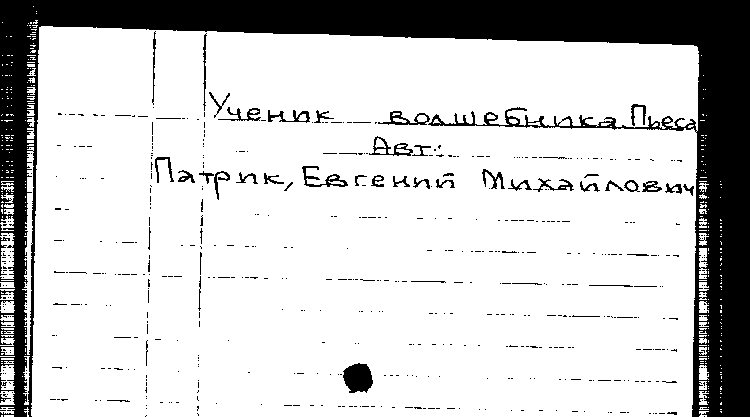 Ученик волшебника. Пьеса
Авт.:
Патрик, Евгений Михайлович